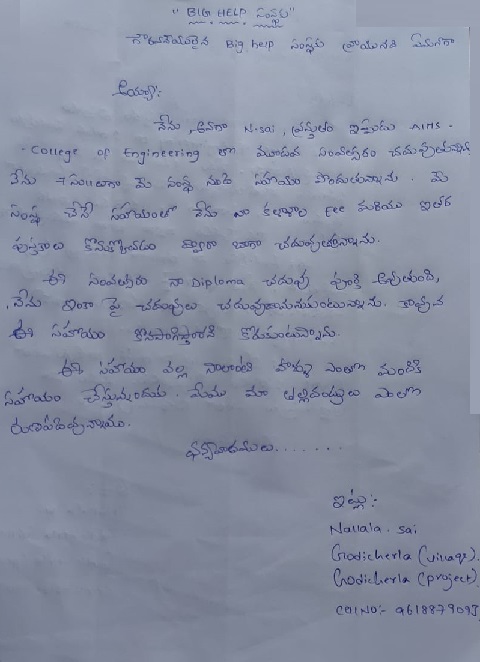 "BIG HELP సంస్థకు"
గౌరవనీయులైన Big help సంస్థకు వ్రాయునది ఏమనగా
అయ్యా:
నేను, అనగా N.sai, ప్రస్తుతం ఇప్పుడు AIMS -
- College of Engineering లో మూడవ సంవత్సరం చదువుతున్నాను
నేను 7 సం॥లుగా మీ సంస్థ నుండి సహాయం పొందుతున్నాను. మీ
సంస్థ చేసే సహాయంతో నేను నా కళాశాల Fee మరియు ఇతర
పుస్తకాలు కొనుక్కోవడం ద్వారా బాగా చదువుతున్నాను.
ఈ సంవత్సరం నా Diploma చదువు పూర్తి అవుతుంది,
నేను ఇంకా పై చదువులు చదువుతామనుకుంటున్నాను. కావున
ఈ సహాయం కొనసాగిస్తారని కోరుకుంటున్నాను.
ఈ సహాయం వల్ల నాలాంటి వాళ్ళు ఎంతో మందికి
సహాయం చేస్తున్నందుకు. మేము మా తల్లిదండ్రులు ఎంతో
రుణపడివున్నాము.
ధన్యవాదములు.......
ఇట్లు:
Nallala. sai
Godicherla (village).
Godicherla (project)
Cell NO:-